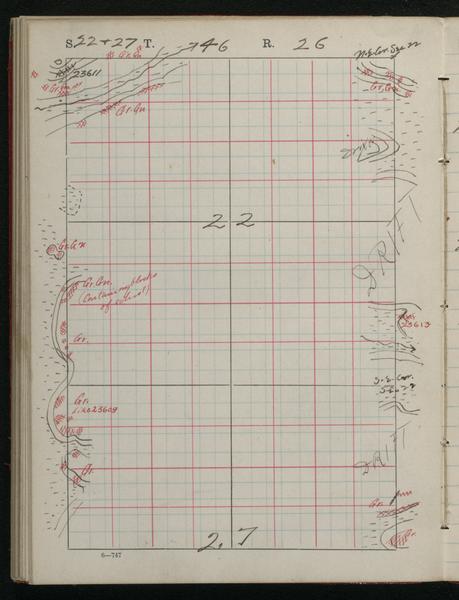 S. 22 + 27 T. 46 R. 26
N.E. Cor. Sec 22
Gr. Gn
23611
Gr. Gn
Gr. Gn
DRIFT
22
Gr. Gn
Gr. Gn.
(Containing blocks
of schist)
DRIFT
23613
Gr.
S.E. Cor.
Sec. 22
Gr.
Like 23609
DRIFT
Gr.
Gr.
27
6—747